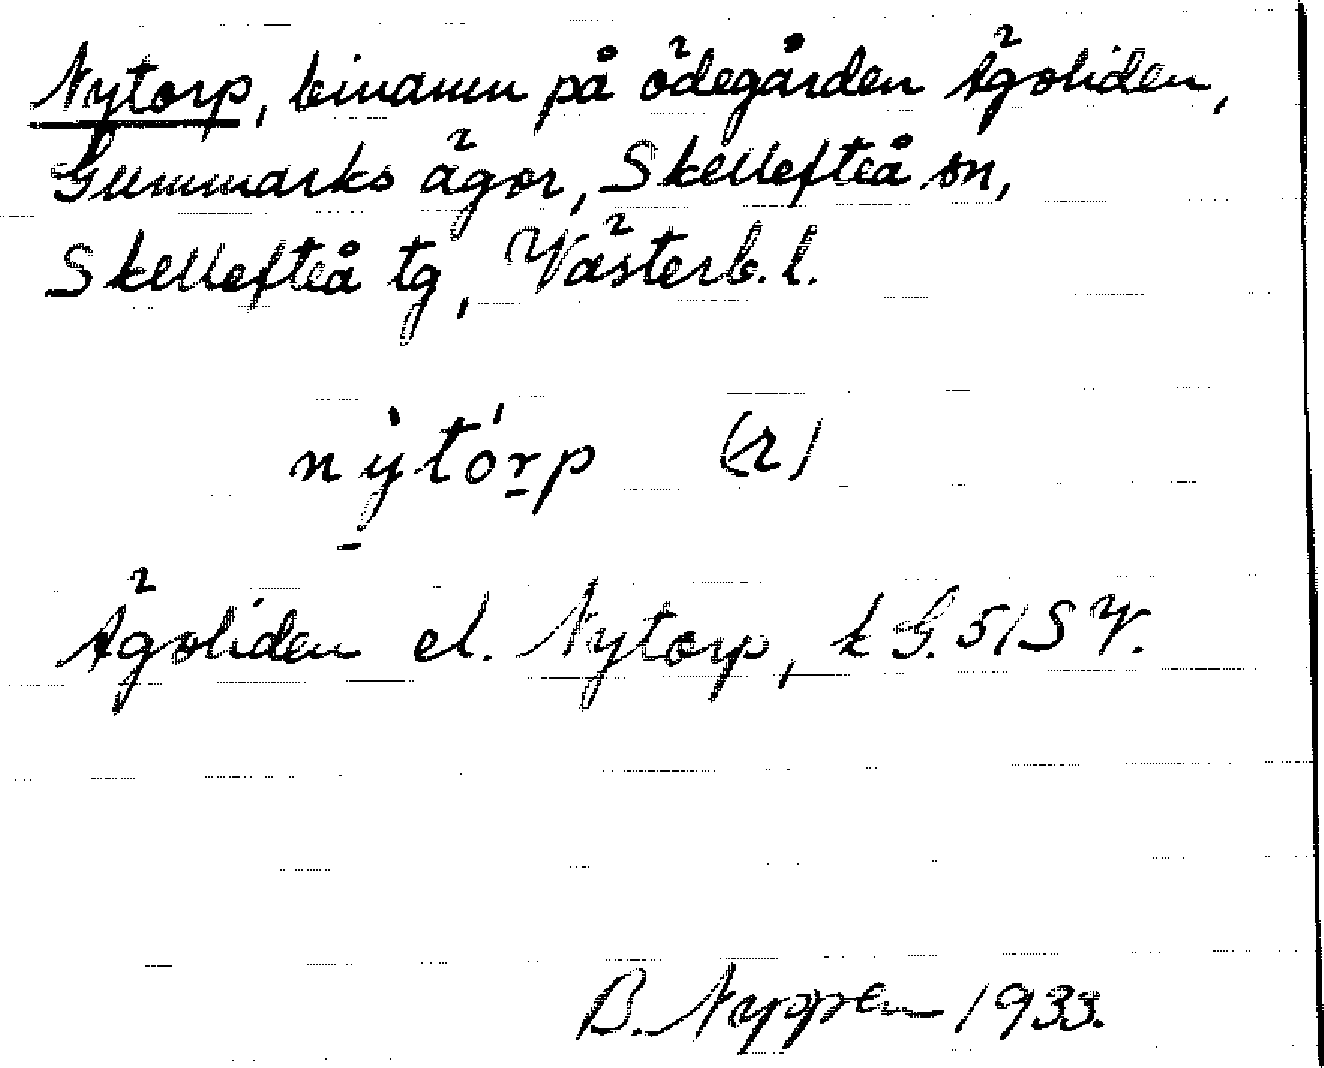 Nytorp, binamn på ödegården Ägoliden,
Gummarks ägor, Skellefteå sn,
Skellefteå tg, Västerb. l.
nỳtórp (2)
Ägoliden el. Nytorp, k G. 51 S V.
B. Nyppen 1933.